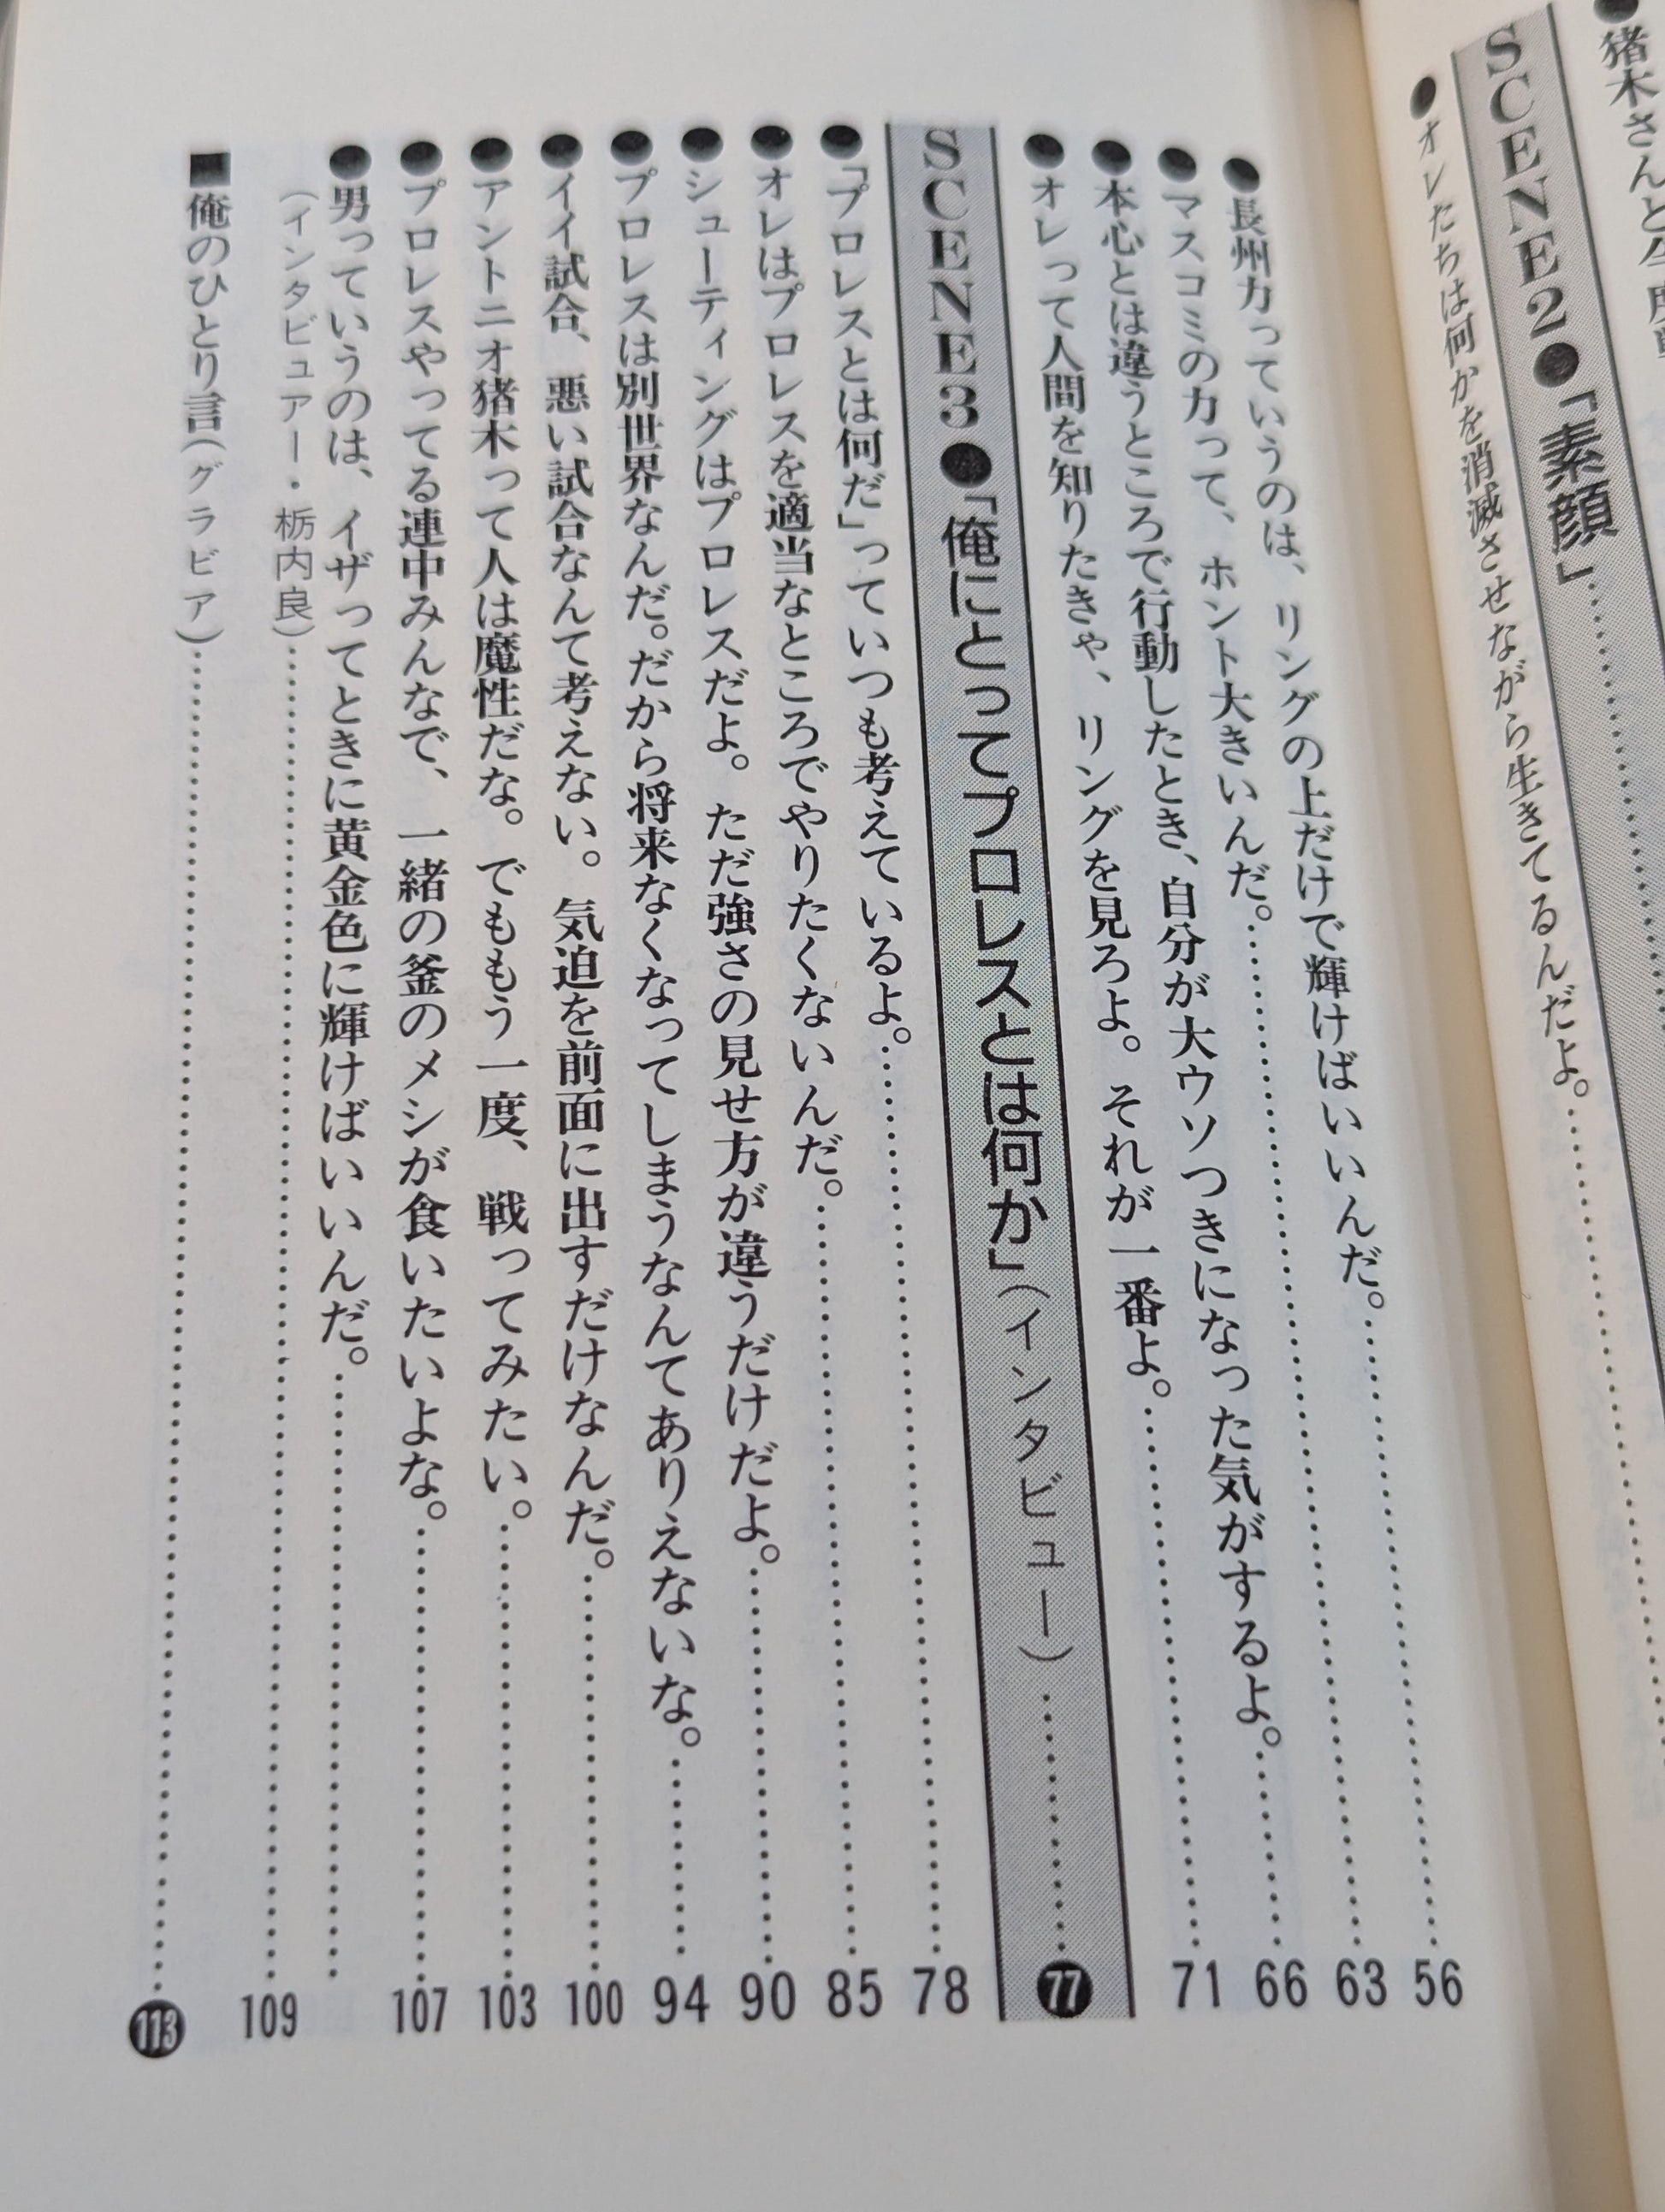 ●猪木さんと今度
SCENE2●「素顔」
●オレたちは何かを消滅させながら生きてるんだよ。
●長州力っていうのは、リングの上だけで輝けばいいんだ。 56
●マスコミの力って、ホント大きいんだ。 63
●本心とは違うところで行動したとき、自分が大ウソつきになった気がするよ。 66
●オレって人間を知りたきゃ、リングを見ろよ。それが一番よ。 71
SCENE3●「俺にとってプロレスとは何か」(インタビュー) 77
●「プロレスとは何だ」っていつも考えているよ。 78
●オレはプロレスを適当なところでやりたくないんだ。 85
●シューティングはプロレスだよ。ただ強さの見せ方が違うだけだよ。 90
●プロレスは別世界なんだ。だから将来なくなってしまうなんてありえないな。 94
●イイ試合、悪い試合なんて考えない。気迫を前面に出すだけなんだ。 100
●アントニオ猪木って人は魔性だな。でももう一度、戦ってみたい。 103
●プロレスやってる連中みんなで、一緒の釜のメシが食いたいよな。 107
●男っていうのは、イザってときに黄金色に輝けばいいんだ。
(インタビュアー・栃内良) 109
■俺のひとり言(グラビア) 113